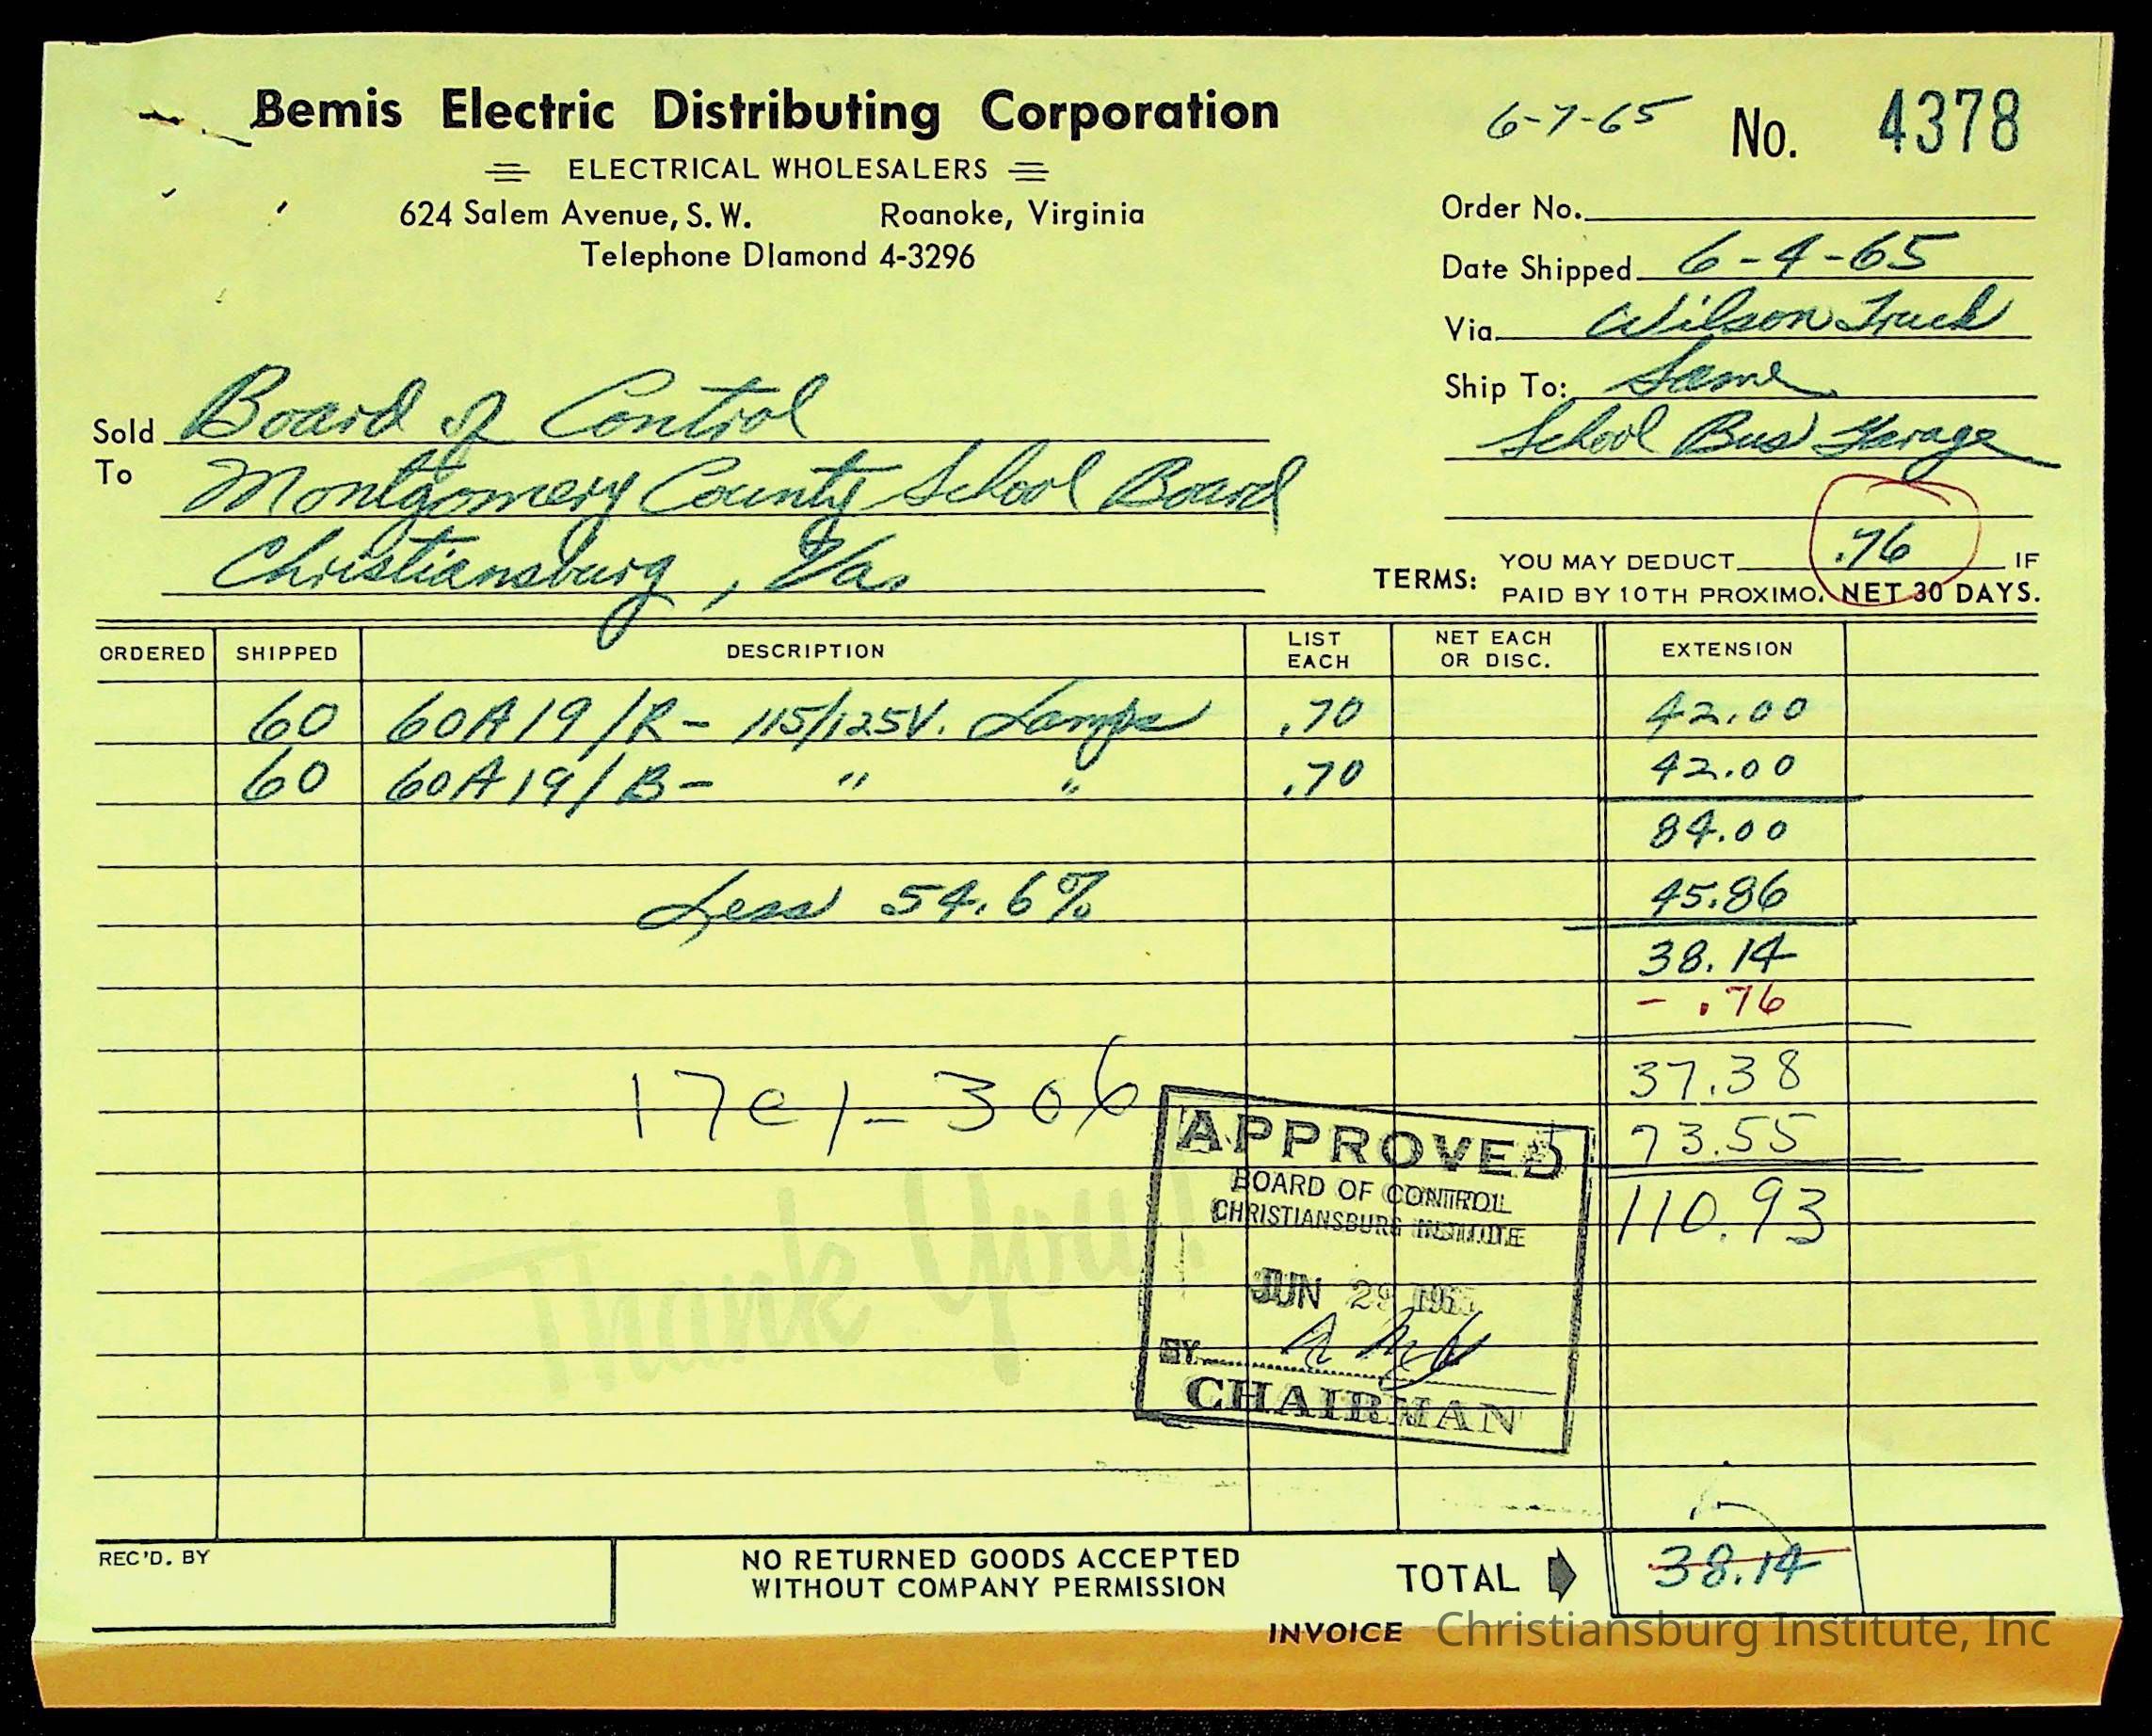 Bemis Electric Distributing Corporation
ELECTRICAL WHOLESALERS
624 Salem Avenue, S. W. Roanoke, Virginia
Telephone DIamond 4-3296
6-7-65 No. 4378
Order No.
Date Shipped 6-4-65
Via Wilson Truck
Ship To: Same
School Bus Garage
Sold To Board of Control
Montgomery County School Board
Christiansburg, Va.
TERMS: YOU MAY DEDUCT .76 IF
PAID BY 10TH PROXIMO. NET 30 DAYS.
ORDERED SHIPPED DESCRIPTION LIST EACH NET EACH OR DISC. EXTENSION
60 60A19/R- 115/125V. Lamps .70 42.00
60 60A19/B- " " .70 42.00
84.00
Less 54.6% 45.86
38.14
- .76
37.38
17c1-306
73.55
110.93
APPROVED
BOARD OF CONTROL
CHRISTIANSBURG INSTITUTE
JUN 29 1965
BY
CHAIRMAN
Thank You!
REC'D. BY
NO RETURNED GOODS ACCEPTED
WITHOUT COMPANY PERMISSION
TOTAL 38.14
INVOICE
Christiansburg Institute, Inc